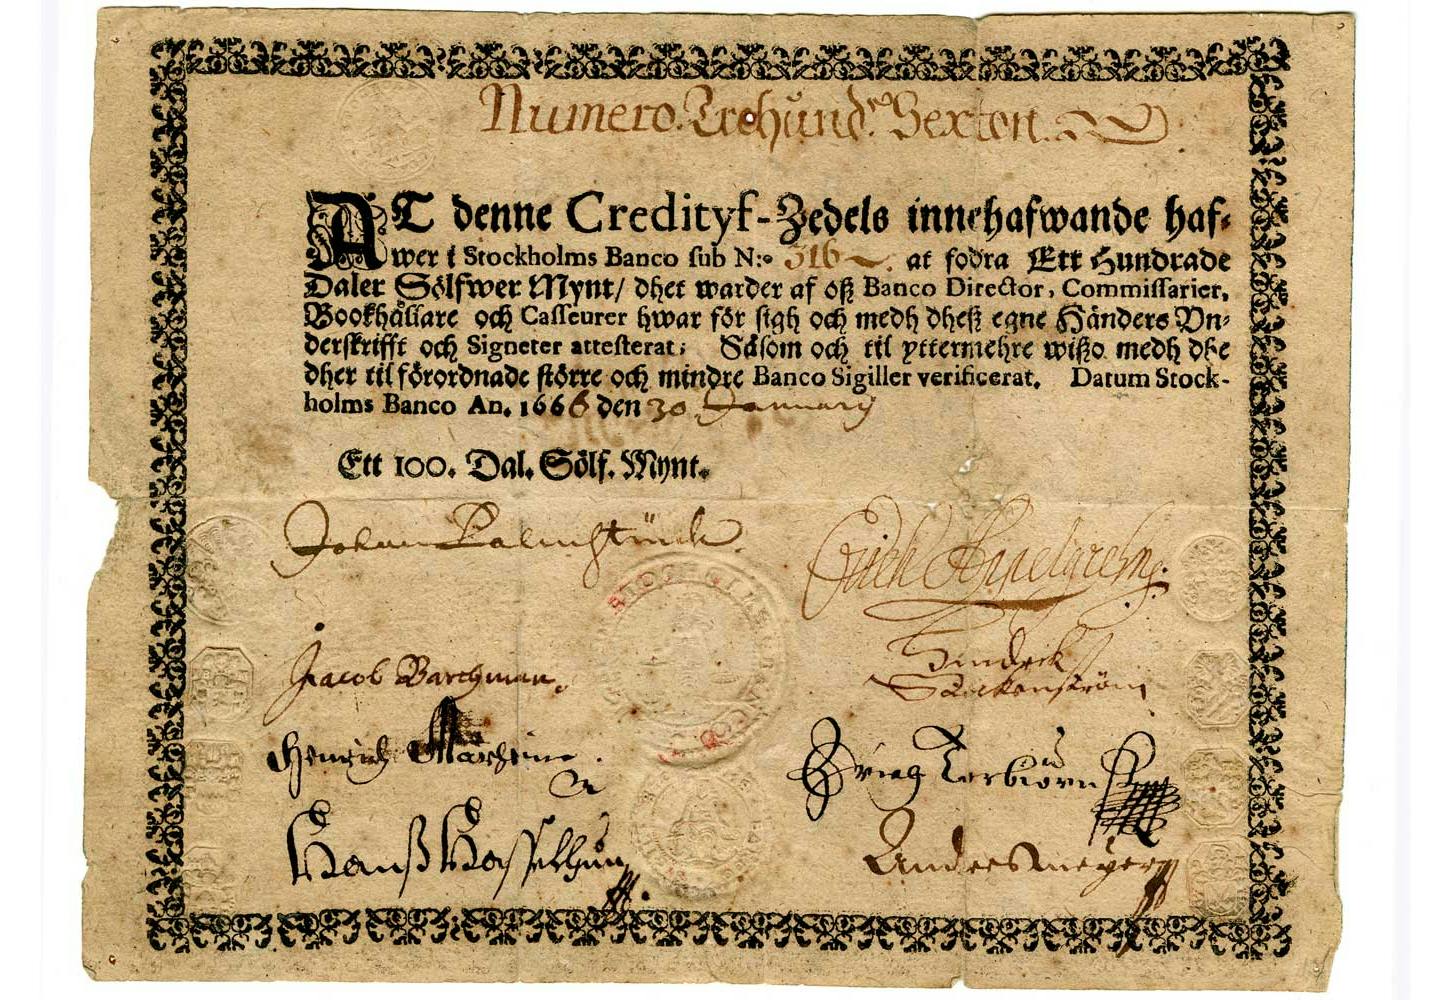 Numero. Trehund. Sexton.
AT denne Credityf-Zedels innehafwande haf-
wer i Stockholms Banco sub N:o 316. at fodra Ett Hundrade
Daler Sölfwer Mynt/ dhet warder af oß Banco Director, Commissarier,
Bookhållare och Casseurer hwar för sigh och medh dheß egne Händers Vn-
derskrifft och Signeter attesterat; Såsom och til yttermehre wißo medh dhe
dher til förordnade större och mindre Banco Sigiller verificerat. Datum Stock-
holms Banco An. 1666 den 30 January
Ett 100. Dal. Sölf. Mynt.
Johan Palmstruck.
Jacob Barchman.
Henrich
Hanß
Hindrick
Andres Meyer